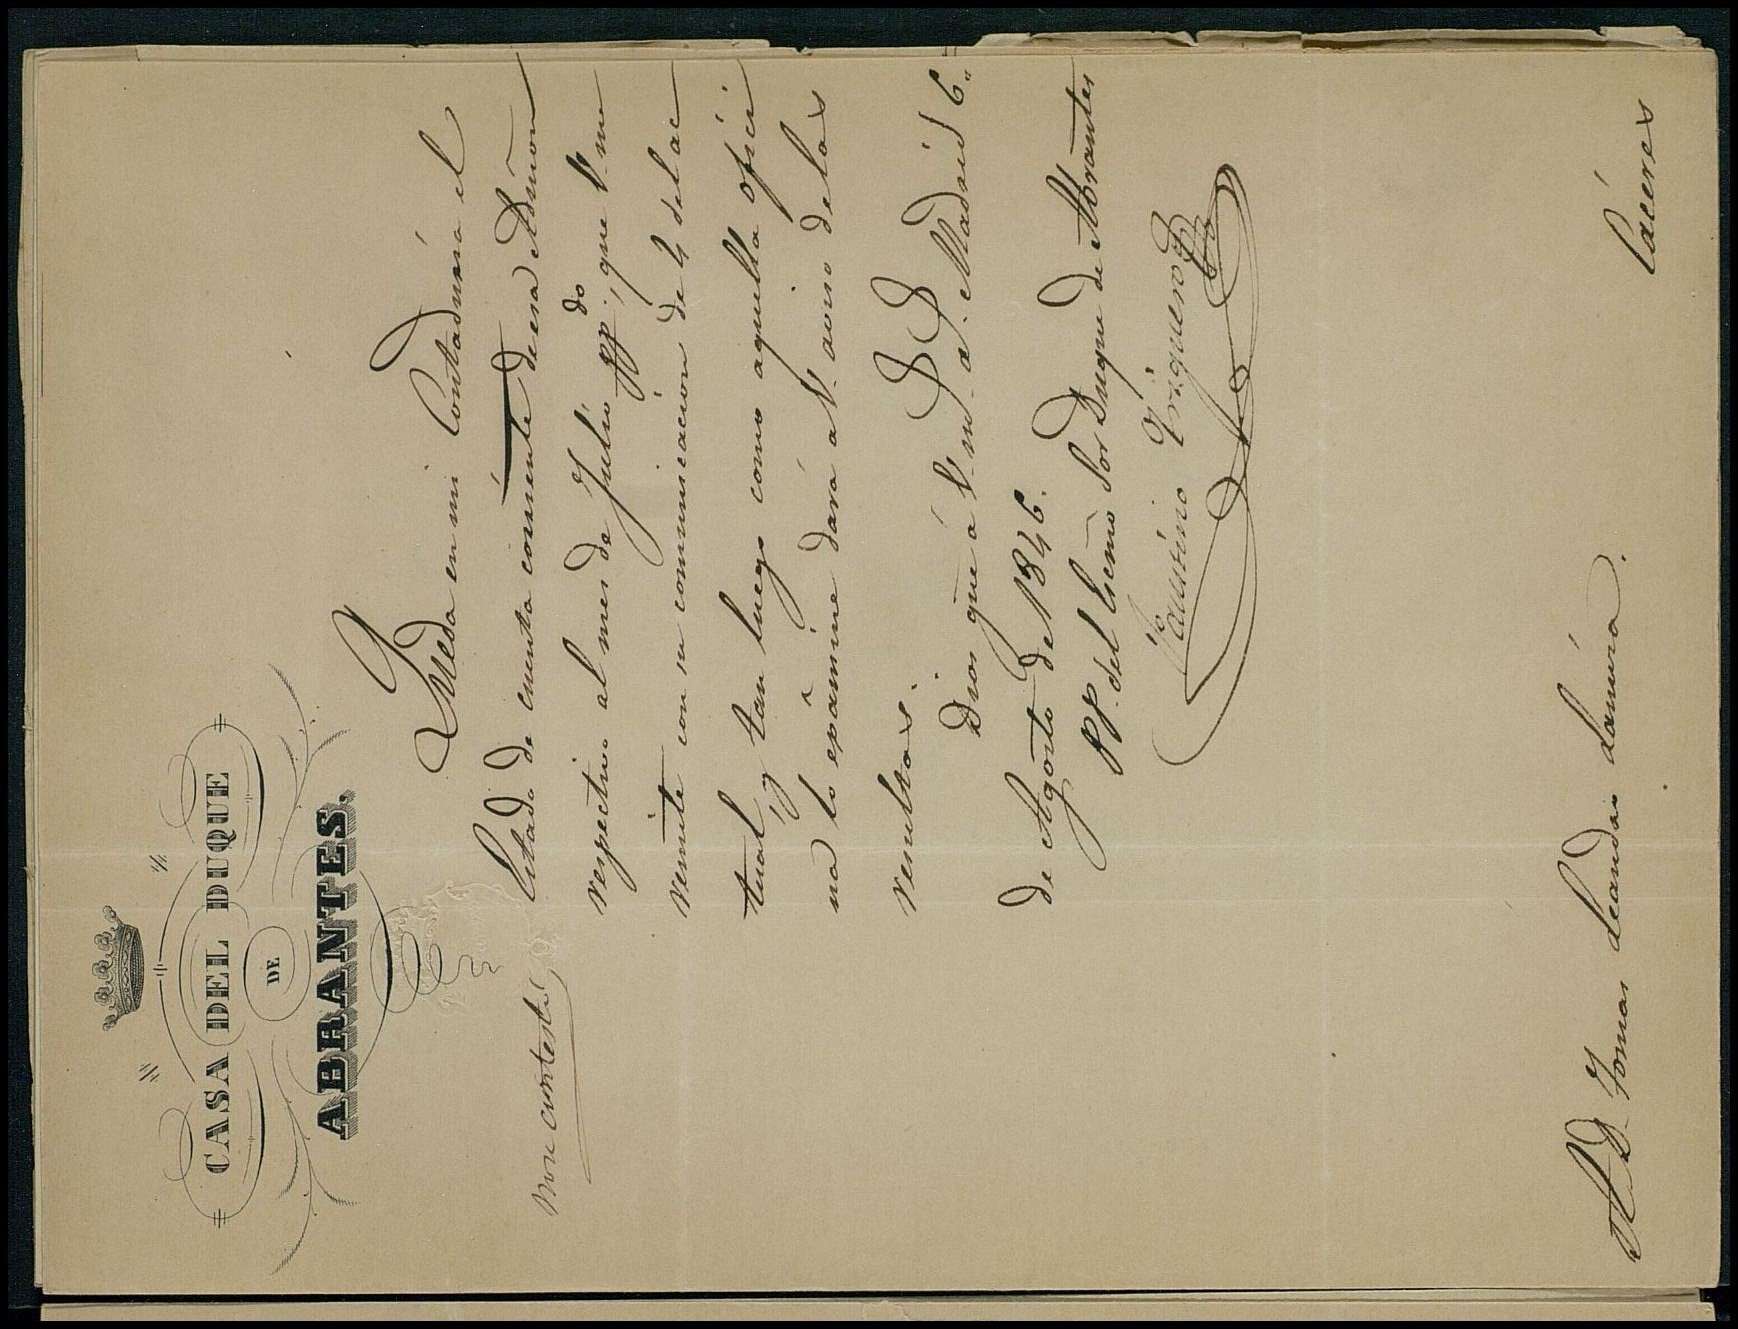 CASA DEL DUQUE
DE
ABRANTES.
Queda en mi Contaduría el
Estado de cuenta corriente de esa Admon
respectivo al mes de Julio pp.do, que V. me
remite con su comunicacion de 4 del ac
tual, y tan luego como aquella ofici
na lo examine dará a V. aviso de las
resultas.
Dios gue á V. m. a. Madrid 6.
de Agosto de 1846.
PP. del Excmo Sor Duque de Abrantes
Faustino Trigueros
no se contestó
Sr. D. Tomas Leandro Lamura.
Cáceres